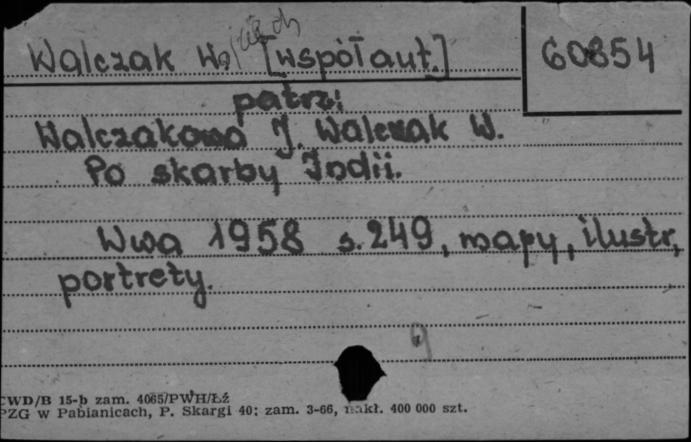 Walczak Wojciech [współaut.] 60854
patrz:
Walczakowa J. Walczak W.
Po skarby Indii.
Wwa 1958 s. 249, mapy, ilustr,
portrety.
CWD/B 15-b zam. 4065/PWH/Łź
PZG w Pabianicach, P. Skargi 40; zam. 3-66, nakł. 400 000 szt.